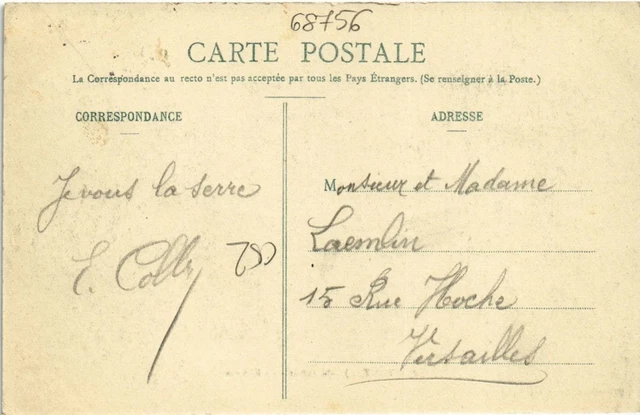 68756
CARTE POSTALE
La Correspondance au recto n'est pas acceptée par tous les Pays Étrangers. (Se renseigner à la Poste.)
CORRESPONDANCE
ADRESSE
Je vous la serre
E. Colly
780
Monsieur et Madame
Laemlin
15 Rue Hoche
Versailles